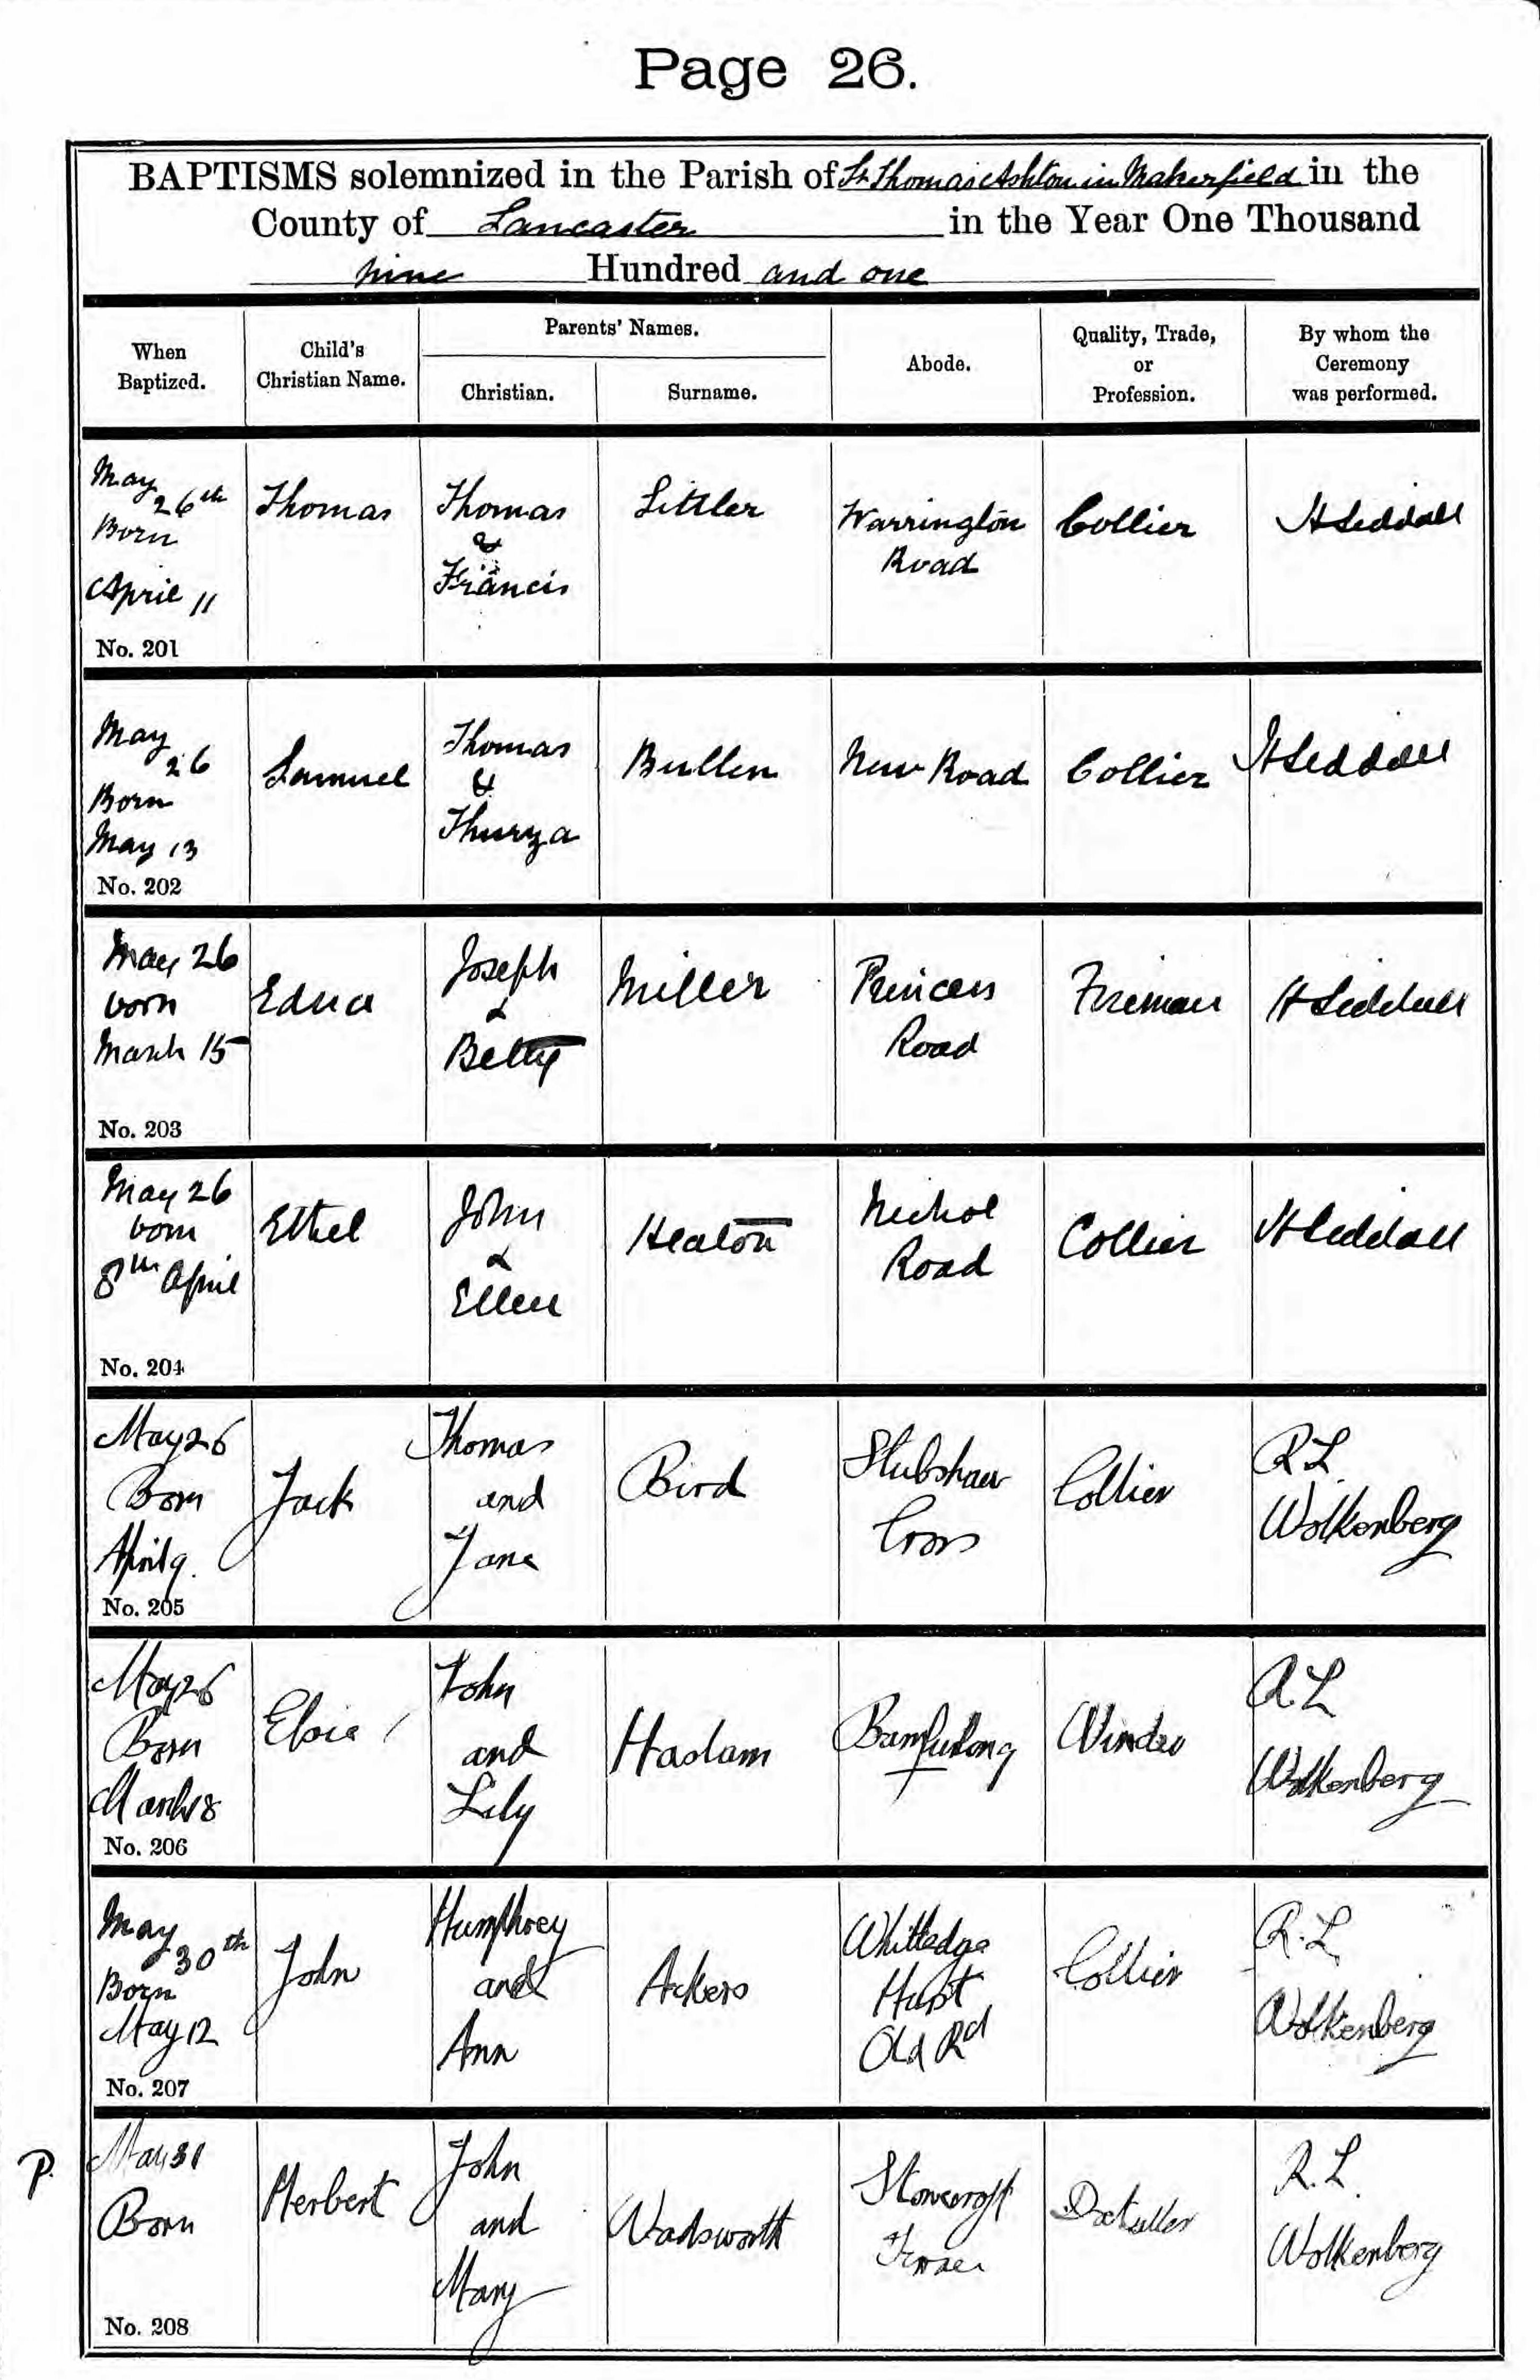 Page 26.
BAPTISMS solemnized in the Parish of St Thomas Ashton in Makerfield in the
County of Lancaster in the Year One Thousand
nine Hundred and one
When Baptized.
Child's Christian Name.
Parents' Names.
Christian.
Surname.
Abode.
Quality, Trade, or Profession.
By whom the Ceremony was performed.
May 26th
Born
April 11
No. 201
Thomas
Thomas
&
Francis
Littler
Warrington
Road
Collier
H Siddall
May 26
Born
May 13
No. 202
Samuel
Thomas
&
Thurza
Bullen
New Road
Collier
H Siddall
May 26
born
March 15
No. 203
Edna
Joseph
&
Betty
Miller
Princess
Road
Fireman
H Siddall
May 26
born
8th April
No. 204
Ethel
John
&
Ellen
Heaton
Nichol
Road
Collier
H Siddall
May 26
Born
April 9.
No. 205
Jack
Thomas
and
Jane
Bird
Stubshaw
Cross
Collier
R L
Wolkenberg
May 26
Born
March 18
No. 206
Elsie
John
and
Lily
Haslam
Bamfurlong
R L
Wolkenberg
May 30th
Born
May 12
No. 207
John
Humphrey
and
Ann
Ackers
Whitledge
Old Rd
Collier
R. L
Wolkenberg
P.
May 31
Born
No. 208
Herbert
John
and
Mary
Wadsworth
R. L.
Wolkenberg